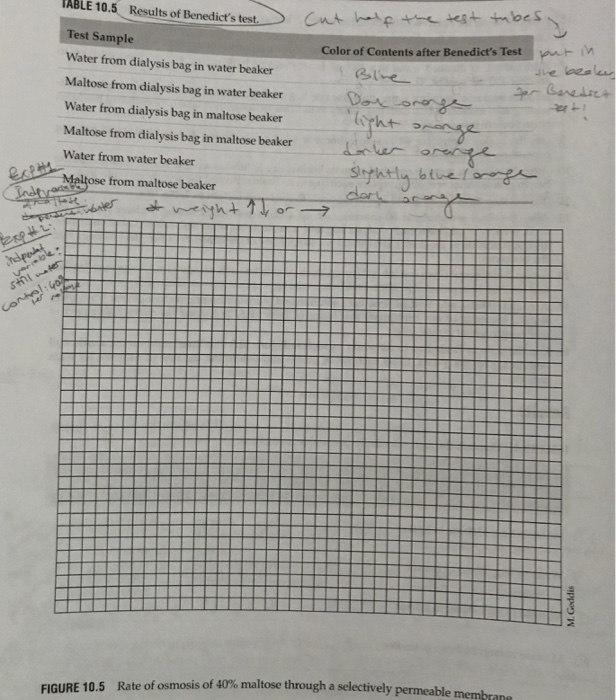 TABLE 10.5 Results of Benedict's test.
Cut half the test tubes
put in
the beaker
for Benedict
test!
Test Sample Color of Contents after Benedict's Test
Water from dialysis bag in water beaker Blue
Maltose from dialysis bag in water beaker Dark orange
Water from dialysis bag in maltose beaker light orange
Maltose from dialysis bag in maltose beaker darker orange
Water from water beaker slightly blue/orange
Maltose from maltose beaker dark orange
Exp#1
* weight ↑↓ or →
Exp#2:
variable:
still water
control: 40%
M. Geddis
FIGURE 10.5 Rate of osmosis of 40% maltose through a selectively permeable membrane